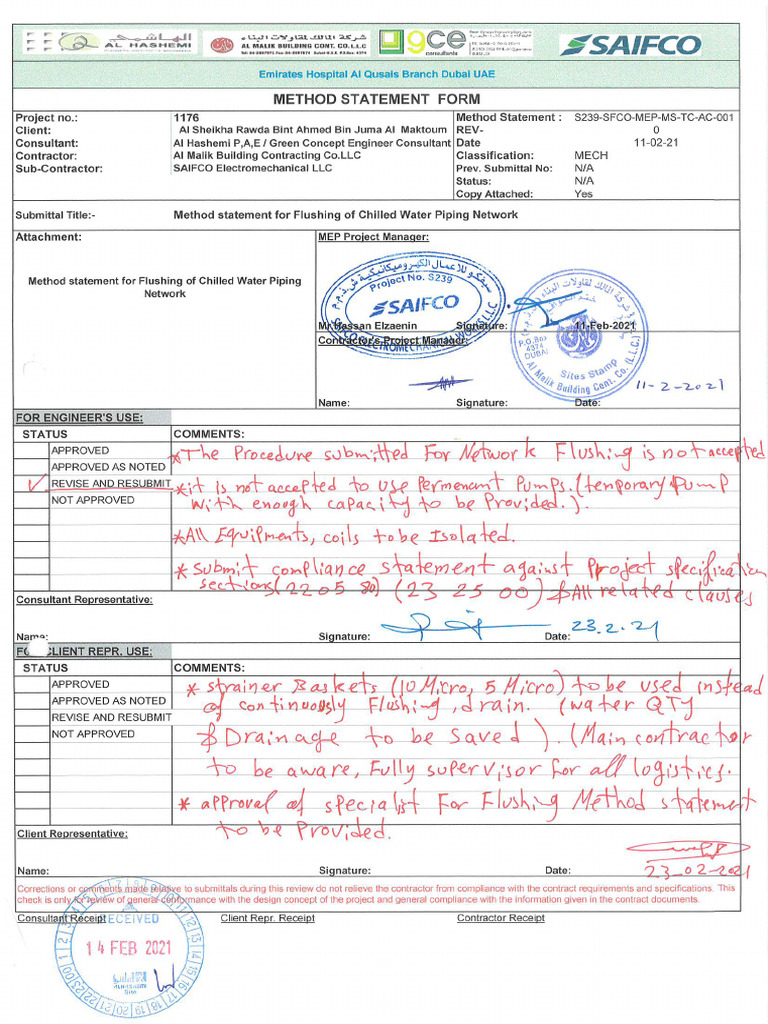 الهاشمي
AL HASHEMI
شركة المالك لمقاولات البناء (ذ.م.م)
AL MALIK BUILDING CONT. CO.L.L.C
gce
consultants
SAIFCO
Emirates Hospital Al Qusais Branch Dubai UAE
METHOD STATEMENT FORM
Project no.: 1176 Method Statement : S239-SFCO-MEP-MS-TC-AC-001
Client: Al Sheikha Rawda Bint Ahmed Bin Juma Al Maktoum REV- 0
Consultant: Al Hashemi P,A,E / Green Concept Engineer Consultant Date 11-02-21
Contractor: Al Malik Building Contracting Co.LLC Classification: MECH
Sub-Contractor: SAIFCO Electromechanical LLC Prev. Submittal No: N/A
Status: N/A
Copy Attached: Yes
Submittal Title:- Method statement for Flushing of Chilled Water Piping Network
Attachment: MEP Project Manager:
Method statement for Flushing of Chilled Water Piping
Network
سيفكو للاعمال الكهروميكانيكية ش.ذ.م.م
Project No. S239
SAIFCO
SAIFCO ELECTROMECHANICAL WORKS LLC
شركة المالك لمقاولات البناء (ذ.م.م)
P.O.Box
4374
DUBAI
Sites Stamp
Al Malik Building Cont. Co. (L.L.C.)
Mr.Hassan Elzaenin Signature: 11-Feb-2021
Contractor's Project Manager:
11-2-2021
Name: Signature: Date:
FOR ENGINEER'S USE:
STATUS COMMENTS:
APPROVED
APPROVED AS NOTED
REVISE AND RESUBMIT
NOT APPROVED
* The Procedure submitted For Network Flushing is not accepted
* it is not accepted to use Permenant Pumps. (temporary Pump
with enough capacity to be Provided.).
* All Equipments, coils to be Isolated.
* submit compliance statement against Project specification
sections (22 05 80) (23 25 00) & All related clauses
Consultant Representative:
23.2.21
Name: Signature: Date:
CLIENT REPR. USE:
STATUS COMMENTS:
APPROVED
APPROVED AS NOTED
REVISE AND RESUBMIT
NOT APPROVED
* strainer Baskets (10 Micro, 5 Micro) to be used instead
of continuously Flushing, drain. (water QTY
& Drainage to be saved). (Main contractor
to be aware, Fully supervisor for all logistics.
* approval of specialist For Flushing Method statement
to be Provided.
Client Representative:
Name: Signature: Date: 23-02-2021
Corrections or comments made relative to submittals during this review do not relieve the contractor from compliance with the contract requirements and specifications. This
check is only for review of general conformance with the design concept of the project and general compliance with the information given in the contract documents.
Consultant Receipt Client Repr. Receipt Contractor Receipt
RECEIVED
14 FEB 2021
AL HASHEMI
Site